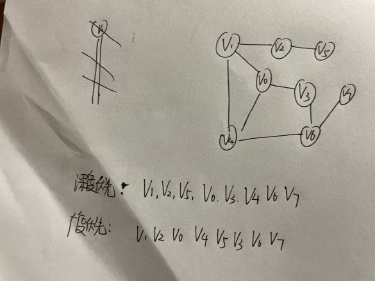 V₁ V₂ V₅
V₀ V₃ V₇
V₄ V₆
深度优先: V₁, V₂, V₅, V₀. V₃. V₄ V₆ V₇
广度优先: V₁ V₂ V₀ V₄ V₅ V₃ V₆ V₇